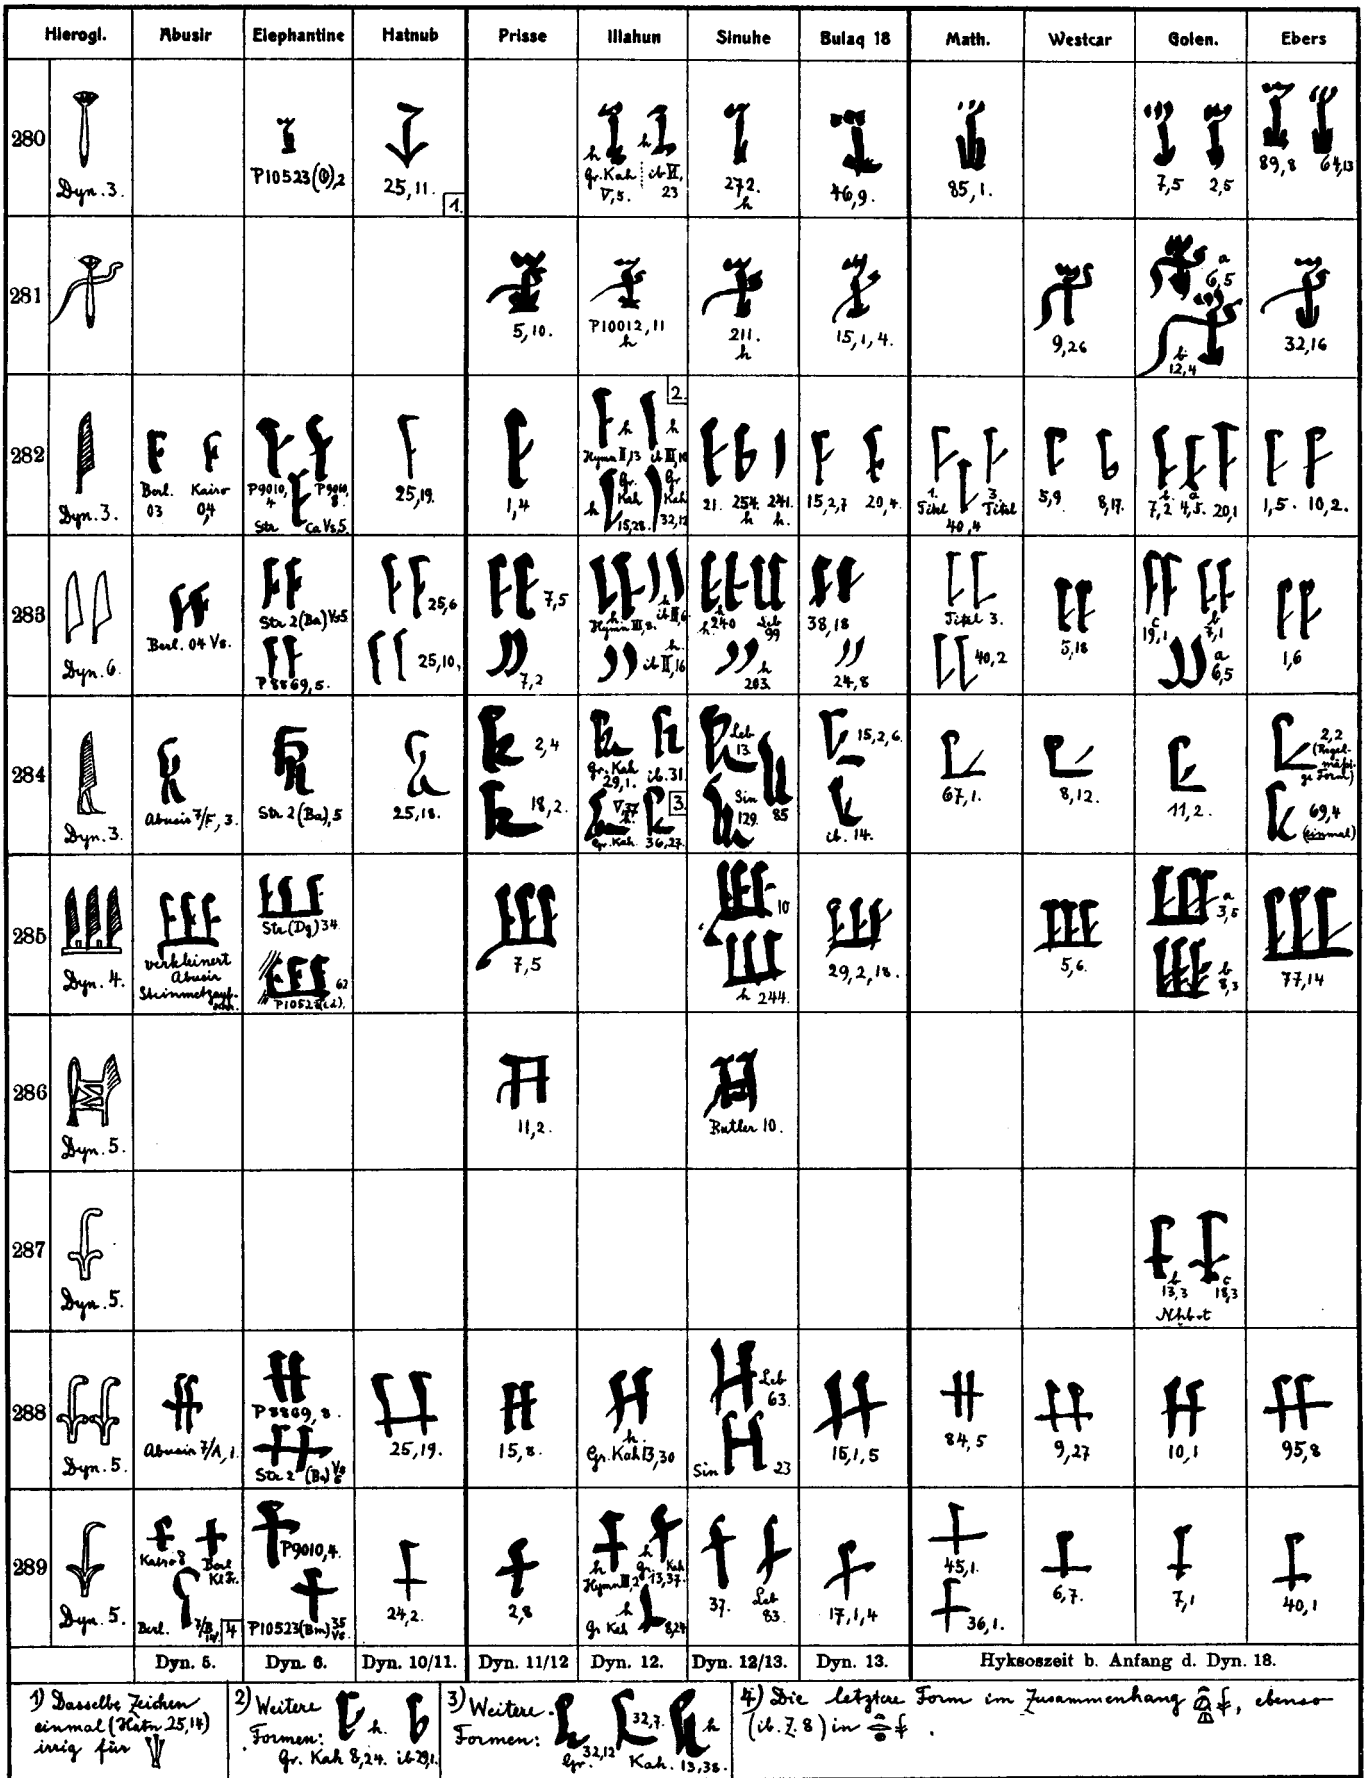 Hierogl. Abusir Elephantine Hatnub Prisse Illahun Sinuhe Bulaq 18 Math. Westcar Golen. Ebers
280
Dyn. 3.
P10523(G),2
25,11.
1.
h h
Gr. Kah V,5.
ib VI, 23
272. h
46,9.
85,1.
7,5 2,5
89,8 64,13
281
5,10.
P10012,11 h
211. h
15,1,4.
9,26
a 6,5
b 12,4
32,16
282
Dyn. 3.
Berl. 03
Kairo 04
P9010, 4
P9010, 8
Str Ca Vs,5.
25,19.
1,4
2.
h h
Hymn II,13 ib III,10
h Gr. Kah 15,28.
Gr Kah 32,12
21. 254. h 241. h.
15,2,7 20,4.
1. Titel
3. Titel
40,4
5,9 8,17.
b 7,2 a 4,5. 20,1
1,5. 10,2.
283
Dyn. 6.
Berl. 04 Vs.
Str 2 (Ba) Vs 5
P8869,5.
25,6
25,10.
7,5
7,2
h Hymn III,8.
h ib III,6
h. ib II,16
h h. 240
Leb 99
h 203.
38,18
24,8
Titel 3.
40,2
5,18
c 19,1
b 7,1
a 6,5
1,6
284
Dyn. 3.
Abusir 7/F, 3.
Str 2 (Ba), 5
25,18.
2,4
18,2.
Gr. Kah 29,1.
ib. 31.
V,37 h.
3.
Gr. Kah. 36,27.
Leb. 13.
Sin 129.
85
15,2,6.
ib. 14.
67,1.
8,12.
11,2.
2,2 (Regelmäßige Form)
69,4 (einmal)
285
Dyn. 4.
verkleinert
Abusir
Steinmetzaufschr.
Str. (Dg) 34
62
7,5
10
h 244.
29,2,18.
5,6.
a 3,5
b 8,3
77,14
286
Dyn. 5.
11,2.
Butler 10.
287
Dyn. 5.
b 13,3
c 18,3
Nḫbt
288
Dyn. 5.
Abusir 7/A, 1.
P8869, 8.
Str 2 (Ba) Vs 6
25,19.
15,8.
h. Gr. Kah 13,30
Leb 63.
Sin 23
16,1,5
84,5
9,27
10,1
95,8
289
Dyn. 5.
Kairo 8
Berl.
Berl. 7/B, 14.
4
P9010,4.
P10523(Bm) 35 Vs.
24,2.
2,8
h Hymn III,2
h Gr. Kah 13,37.
h Gr Kah 8,24
37.
Leb 83.
17,1,4
45,1.
36,1.
6,7.
7,1
40,1
Dyn. 5. Dyn. 6. Dyn. 10/11. Dyn. 11/12 Dyn. 12. Dyn. 12/13. Dyn. 13. Hyksoszeit b. Anfang d. Dyn. 18.
1) Dasselbe Zeichen
einmal (Hatn. 25,14)
irrig für
2) Weitere
Formen: h.
Gr. Kah 8,24. ib 29,1.
3) Weitere
Formen: 32,7. h
Gr. 32,12 Kah. 13,38.
4) Die letztere Form im Zusammenhang , ebenso
(ib. Z. 8) in .